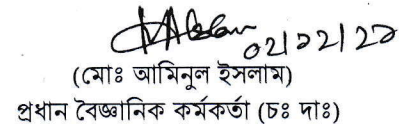 ০২/১২/২১
(মোঃ আমিনুল ইসলাম)
প্রধান বৈজ্ঞানিক কর্মকর্তা (চঃ দাঃ)